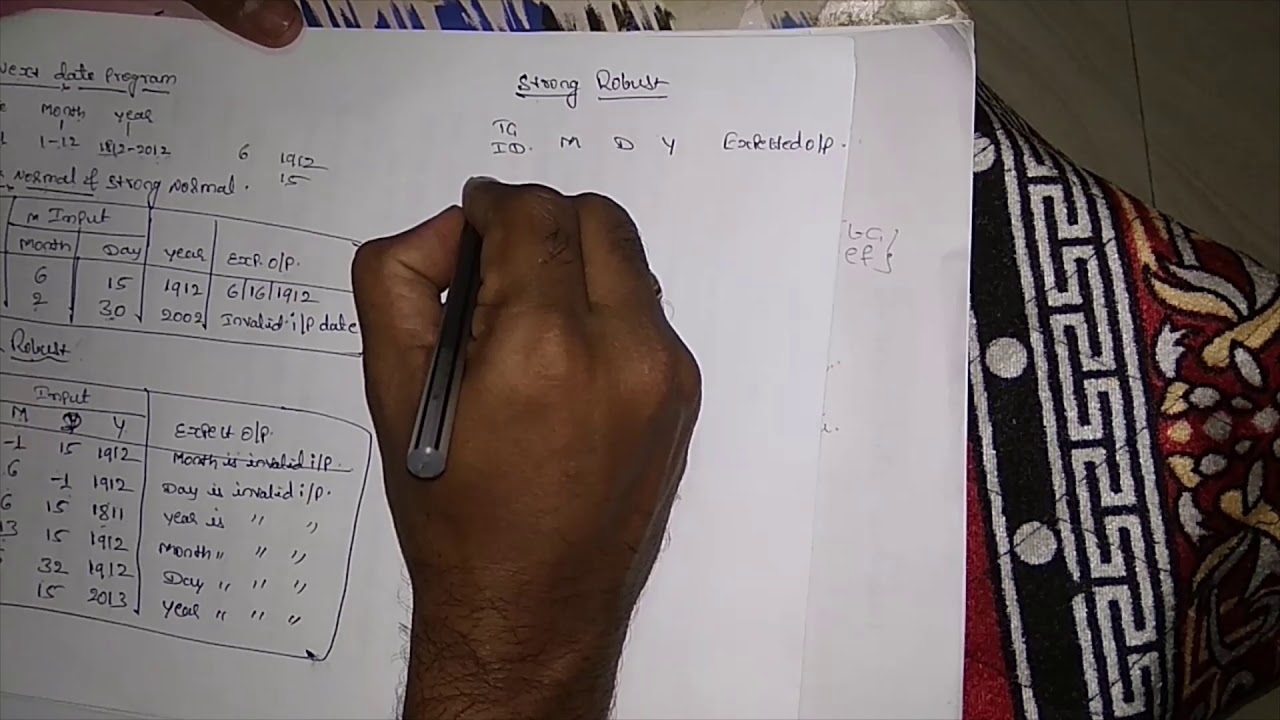 Next date program
Month year
1-12 1812-2012
6 1912
15
Normal & Strong Normal.
m Input
Month Day year Exp. O/P.
6 15 1912 6/16/1912
2 30 2002 Invalid i/p date
Robust
Input
M D Y Expect O/P.
-1 15 1912 Month is invalid i/p.
6 -1 1912 Day is invalid i/p.
6 15 1811 year is " "
13 15 1912 Month " " "
32 1912 Day " " "
15 2013 year " " "
Strong Robust
ID. M D Y Expected o/p.
ef}